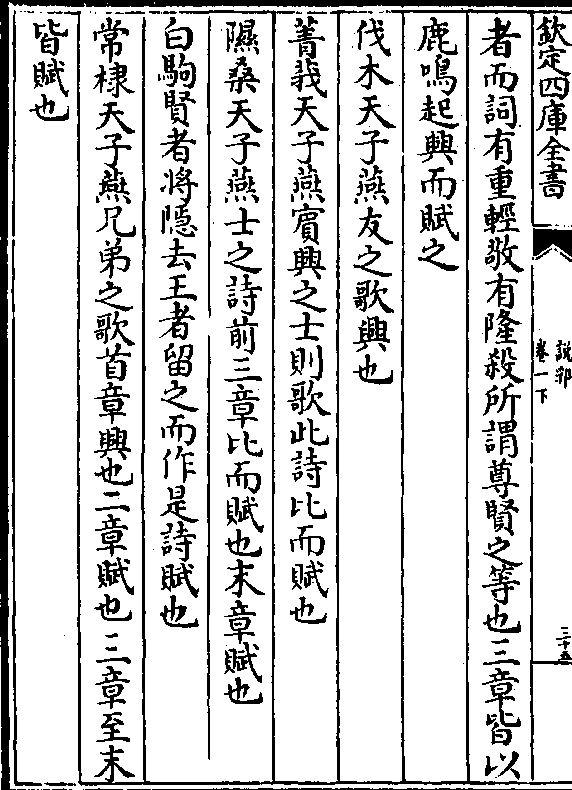 欽定四庫全書
說郛
卷一下
三十五
者而詞有重輕敬有隆殺所謂尊賢之等也三章皆以
鹿鳴起興而賦之
伐木天子燕友之歌興也
菁莪天子燕賔興之士則歌此詩比而賦也
隰桑天子燕士之詩前三章比而賦也末章賦也
白駒賢者將隠去王者留之而作是詩賦也
常棣天子燕兄弟之歌首章興也二章賦也三章至末
皆賦也